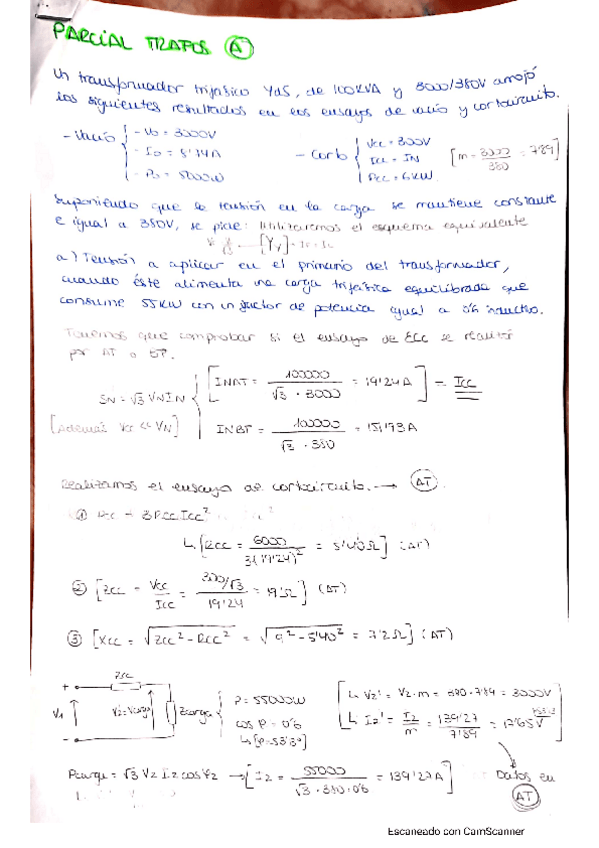 PARCIAL TRAFOS (A)
Un transformador trifásico Yd5, de 100KVA y 3000/380V arrojó
los siguientes resultados en los ensayos de vacío y cortocircuito.
- Vacío { - Vo = 3000V
- Io = 5'14A
- Po = 5000W
- Corto { Vcc = 300V
Icc = IN
Pcc = 6KW
[m = 3000/380 = 7'89]
Suponiendo que se tensión en la carga se mantiene constante
e igual a 380V, se pide: Utilizaremos el esquema equivalente
a) Tensión a aplicar en el primario del transformador,
cuando éste alimenta una carga trifásica equilibrada que
consume 55KW con un factor de potencia igual a 0'6 inductivo.
Tenemos que comprobar si el ensayo de Ecc se realizó
por AT o BT.
SN = √3 VN IN { [INAT = 100000/(√3 · 3000) = 19'24A] = Icc
[Además Vcc << VN]
INBT = 100000/(√3 · 380) = 151'93A
Realizamos el ensayo de cortocircuito. → (AT)
① Pcc = 3Rcc Icc²
↳ [Rcc = 6000/3(19'24)² = 5'40Ω] (AT)
② [Zcc = Vcc/Icc = (300/√3)/19'24 = 9Ω] (AT)
③ [Xcc = √(Zcc² - Rcc²) = √(9² - 5'40²) = 7'2Ω] (AT)
Zcc
V1
V2 = Vcarga
Zcarga
P = 55000W
cos φ = 0'6
↳ [φ = 53'13°]
[↳ V2' = V2 · m = 380 · 7'89 = 3000V
↳ I2' = I2/m = 139'27/7'89 = 17'65
Datos en
(AT)
Pcarga = √3 V2 I2 cos φ2 → [I2 = 55000/(√3 · 380 · 0'6) = 139'27A]
Escaneado con CamScanner